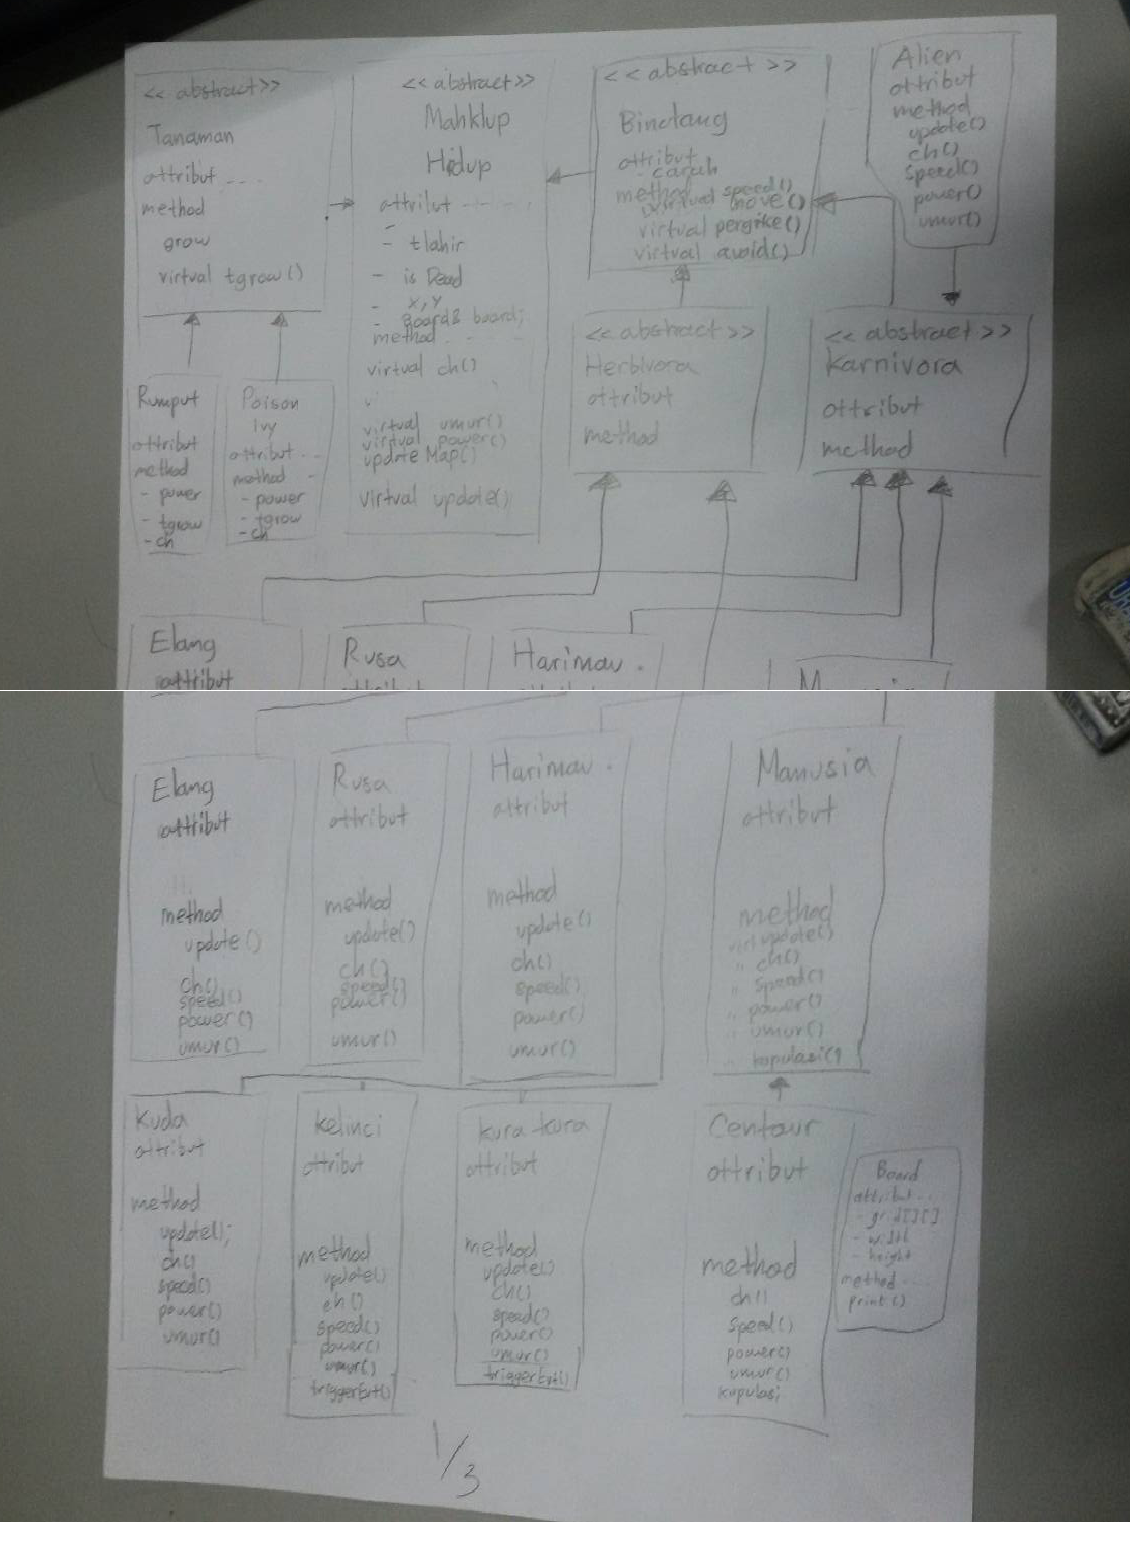 << abstract >>
Tanaman
attribut ....
method
grow
virtual tgrow()
<< abstract >>
Mahklup
Hidup
attribut
- tlahir
- is Dead
- x,y
- Board& board;
method
virtual ch()
virtual umur()
virtual power()
update Map()
virtual update()
<< abstract >>
Binatang
attribut
method
virtual speed()
move()
virtual pergike()
virtual avoid()
Alien
attribut
method
update()
ch()
speed()
power()
umur()
Rumput
attribut
method
- power
- tgrow
- ch
Poison
Ivy
attribut ...
method
- power
- tgrow
- ch
<< abstract >>
Herbivora
attribut
method
<< abstract >>
Karnivora
attribut
method
Elang
attribut
Rusa
Harimau
Elang
attribut
method
update()
ch()
speed()
power()
umur()
Rusa
attribut
method
update()
ch()
speed()
power()
umur()
Harimau
attribut
method
update()
ch()
speed()
power()
umur()
Manusia
attribut
method
virt update()
" ch()
" speed()
" power()
" umur()
" kopulasi()
Kuda
attribut
method
update();
ch()
speed()
power()
umur()
Kelinci
attribut
method
update()
ch()
speed()
power()
umur()
triggerEvt()
kura-kura
attribut
method
update()
ch()
speed()
power()
umur()
triggerEvt()
Centaur
attribut
method
ch()
speed()
power()
umur()
kupulasi
Board
attribut ...
- grid[][]
- width
- height
method ...
print()
1/3